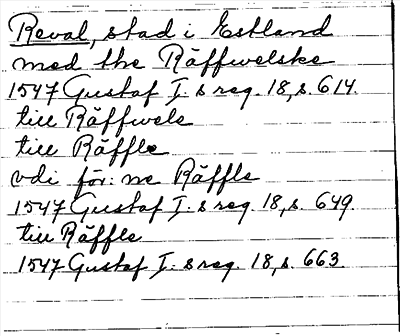 Reval, stad i Estland
med the Räffwelske
1547 Gustaf I: s reg. 18, s. 614.
till Räffwele
till Räffle
vdi för: ne Räffle
1547 Gustaf I: s reg. 18, s. 649.
till Räffle
1547 Gustaf I: s reg. 18, s. 663.